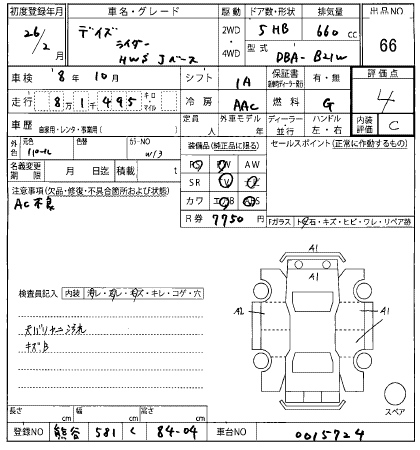 初度登録年月 車名・グレード 駆動 ドア数・形状 排気量 出品NO
26/2月 デイズ 2WD・4WD 5HB 660cc 66
ライダー 型式
HWS Jベース DBA-B21W
車検 8年10月 シフト IA 保証書 有・無 評価点
走行 8万1千495 キロ・マイル 冷房 AAC 燃料 G 4
車歴 自家用・レンタ・事業用( ) 定員 人 外車モデル 年 ディーラー・並行 ハンドル 左・右 内装評価 C
外色 元色 色替 カラーNO W/3 装備品(純正品に限る) セールスポイント(正常に作動するもの)
名義変更期限 月 日迄 積載 t AW
SR
注意事項(欠品・修復・不具合箇所および状態) カワ
AC不良 R券 7750円 Fガラス トビ石・キズ・ヒビ・ワレ・リペア跡
検査員記入 内装 汚レ・コゲ・穴
キズB
A1
A2
A1
A1
スペア
長さ cm 幅 cm 高さ cm
登録NO 熊谷 581 く 84-04 車台NO 0015724